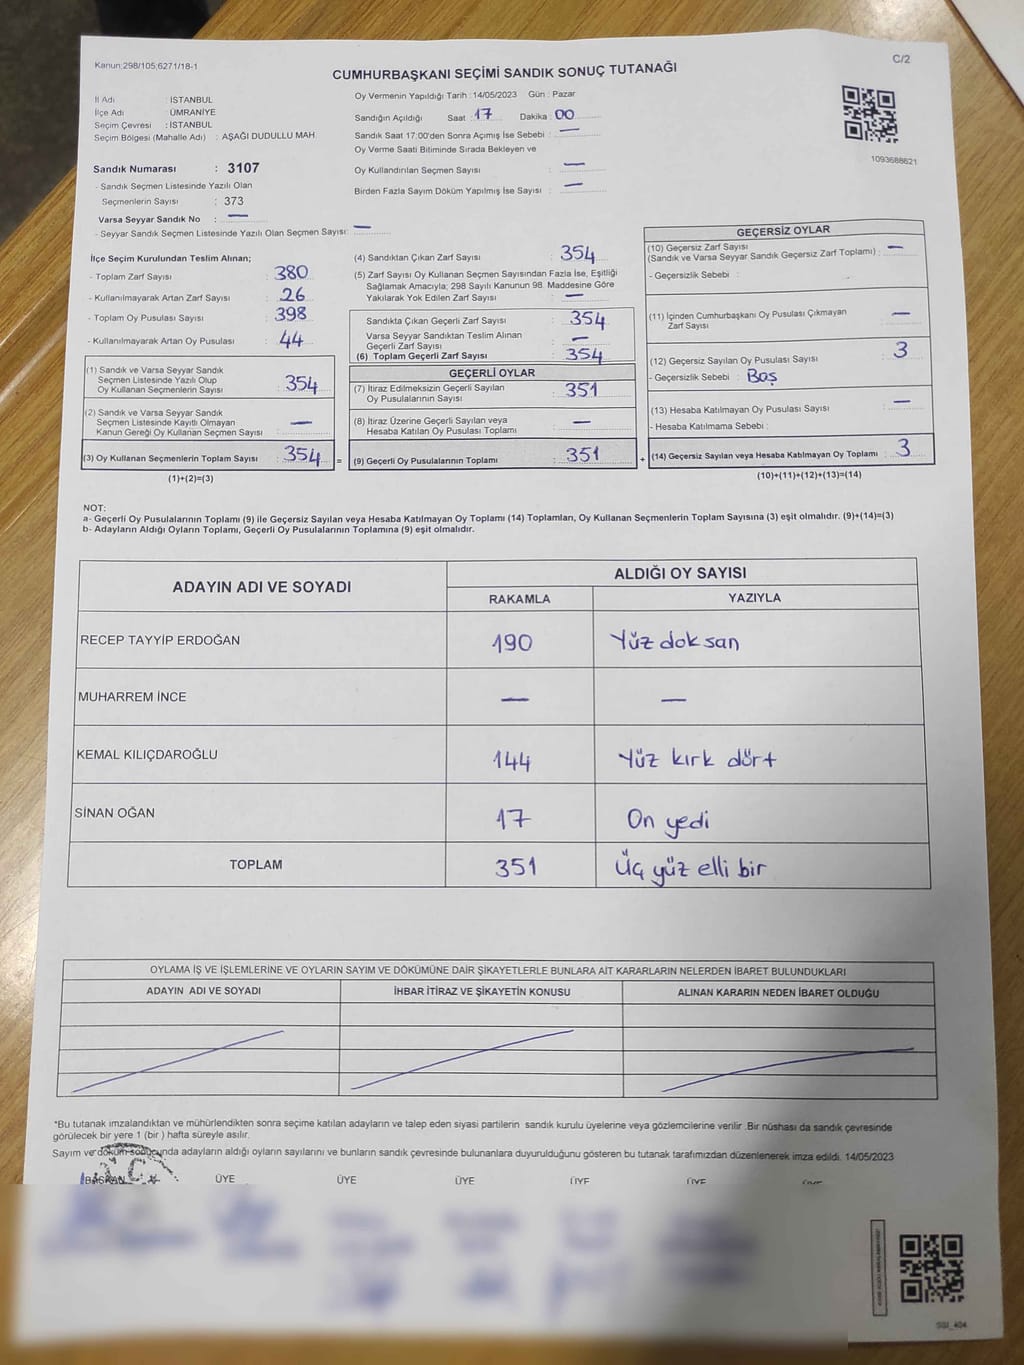 Kanun:298/105;6271/18-1
C/2
CUMHURBAŞKANI SEÇİMİ SANDIK SONUÇ TUTANAĞI
İl Adı : İSTANBUL
İlçe Adı : ÜMRANİYE
Seçim Çevresi : İSTANBUL
Seçim Bölgesi (Mahalle Adı) : AŞAĞI DUDULLU MAH.
Sandık Numarası : 3107
- Sandık Seçmen Listesinde Yazılı Olan
Seçmenlerin Sayısı : 373
Varsa Seyyar Sandık No : —
- Seyyar Sandık Seçmen Listesinde Yazılı Olan Seçmen Sayısı: —
Oy Vermenin Yapıldığı Tarih :14/05/2023 Gün : Pazar
Sandığın Açıldığı Saat :17 Dakika :00
Sandık Saat 17:00'den Sonra Açımış İse Sebebi : —
Oy Verme Saati Bitiminde Sırada Bekleyen ve
Oy Kullandırılan Seçmen Sayısı : —
Birden Fazla Sayım Döküm Yapılmış İse Sayısı : —
1093688621
İlçe Seçim Kurulundan Teslim Alınan;
- Toplam Zarf Sayısı : 380
- Kullanılmayarak Artan Zarf Sayısı : 26
- Toplam Oy Pusulası Sayısı : 398
- Kullanılmayarak Artan Oy Pusulası : 44
(1) Sandık ve Varsa Seyyar Sandık
Seçmen Listesinde Yazılı Olup
Oy Kullanan Seçmenlerin Sayısı : 354
(2) Sandık ve Varsa Seyyar Sandık
Seçmen Listesinde Kayıtlı Olmayan
Kanun Gereği Oy Kullanan Seçmen Sayısı : —
(3) Oy Kullanan Seçmenlerin Toplam Sayısı : 354
(1)+(2)=(3)
=
(4) Sandıktan Çıkan Zarf Sayısı : 354
(5) Zarf Sayısı Oy Kullanan Seçmen Sayısından Fazla İse, Eşitliği
Sağlamak Amacıyla; 298 Sayılı Kanunun 98. Maddesine Göre
Yakılarak Yok Edilen Zarf Sayısı : —
Sandıkta Çıkan Geçerli Zarf Sayısı : 354
Varsa Seyyar Sandıktan Teslim Alınan
Geçerli Zarf Sayısı : —
(6) Toplam Geçerli Zarf Sayısı : 354
GEÇERLİ OYLAR
(7) İtiraz Edilmeksizin Geçerli Sayılan
Oy Pusulalarının Sayısı : 351
(8) İtiraz Üzerine Geçerli Sayılan veya
Hesaba Katılan Oy Pusulası Toplamı : —
(9) Geçerli Oy Pusulalarının Toplamı : 351
+
GEÇERSİZ OYLAR
(10) Geçersiz Zarf Sayısı
(Sandık ve Varsa Seyyar Sandık Geçersiz Zarf Toplamı) : —
- Geçersizlik Sebebi :
(11) İçinden Cumhurbaşkanı Oy Pusulası Çıkmayan
Zarf Sayısı : —
(12) Geçersiz Sayılan Oy Pusulası Sayısı : 3
- Geçersizlik Sebebi : Boş
(13) Hesaba Katılmayan Oy Pusulası Sayısı : —
- Hesaba Katılmama Sebebi :
(14) Geçersiz Sayılan veya Hesaba Katılmayan Oy Toplamı : 3
(10)+(11)+(12)+(13)=(14)
NOT:
a- Geçerli Oy Pusulalarının Toplamı (9) ile Geçersiz Sayılan veya Hesaba Katılmayan Oy Toplamı (14) Toplamları, Oy Kullanan Seçmenlerin Toplam Sayısına (3) eşit olmalıdır. (9)+(14)=(3)
b- Adayların Aldığı Oyların Toplamı, Geçerli Oy Pusulalarının Toplamına (9) eşit olmalıdır.
ADAYIN ADI VE SOYADI
ALDIĞI OY SAYISI
RAKAMLA YAZIYLA
RECEP TAYYİP ERDOĞAN 190 Yüz doksan
MUHARREM İNCE — —
KEMAL KILIÇDAROĞLU 144 Yüz kırk dört
SİNAN OĞAN 17 On yedi
TOPLAM 351 Üç yüz elli bir
OYLAMA İŞ VE İŞLEMLERİNE VE OYLARIN SAYIM VE DÖKÜMÜNE DAİR ŞİKAYETLERLE BUNLARA AİT KARARLARIN NELERDEN İBARET BULUNDUKLARI
ADAYIN ADI VE SOYADI İHBAR İTİRAZ VE ŞİKAYETİN KONUSU ALINAN KARARIN NEDEN İBARET OLDUĞU
*Bu tutanak imzalandıktan ve mühürlendikten sonra seçime katılan adayların ve talep eden siyasi partilerin sandık kurulu üyelerine veya gözlemcilerine verilir .Bir nüshası da sandık çevresinde
görülecek bir yere 1 (bir ) hafta süreyle asılır.
Sayım ve döküm sonucunda adayların aldığı oyların sayılarını ve bunların sandık çevresinde bulunanlara duyurulduğunu gösteren bu tutanak tarafımızdan düzenlenerek imza edildi. 14/05/2023
T.C.
BAŞKAN ÜYE ÜYE ÜYE ÜYE ÜYE ÜYE